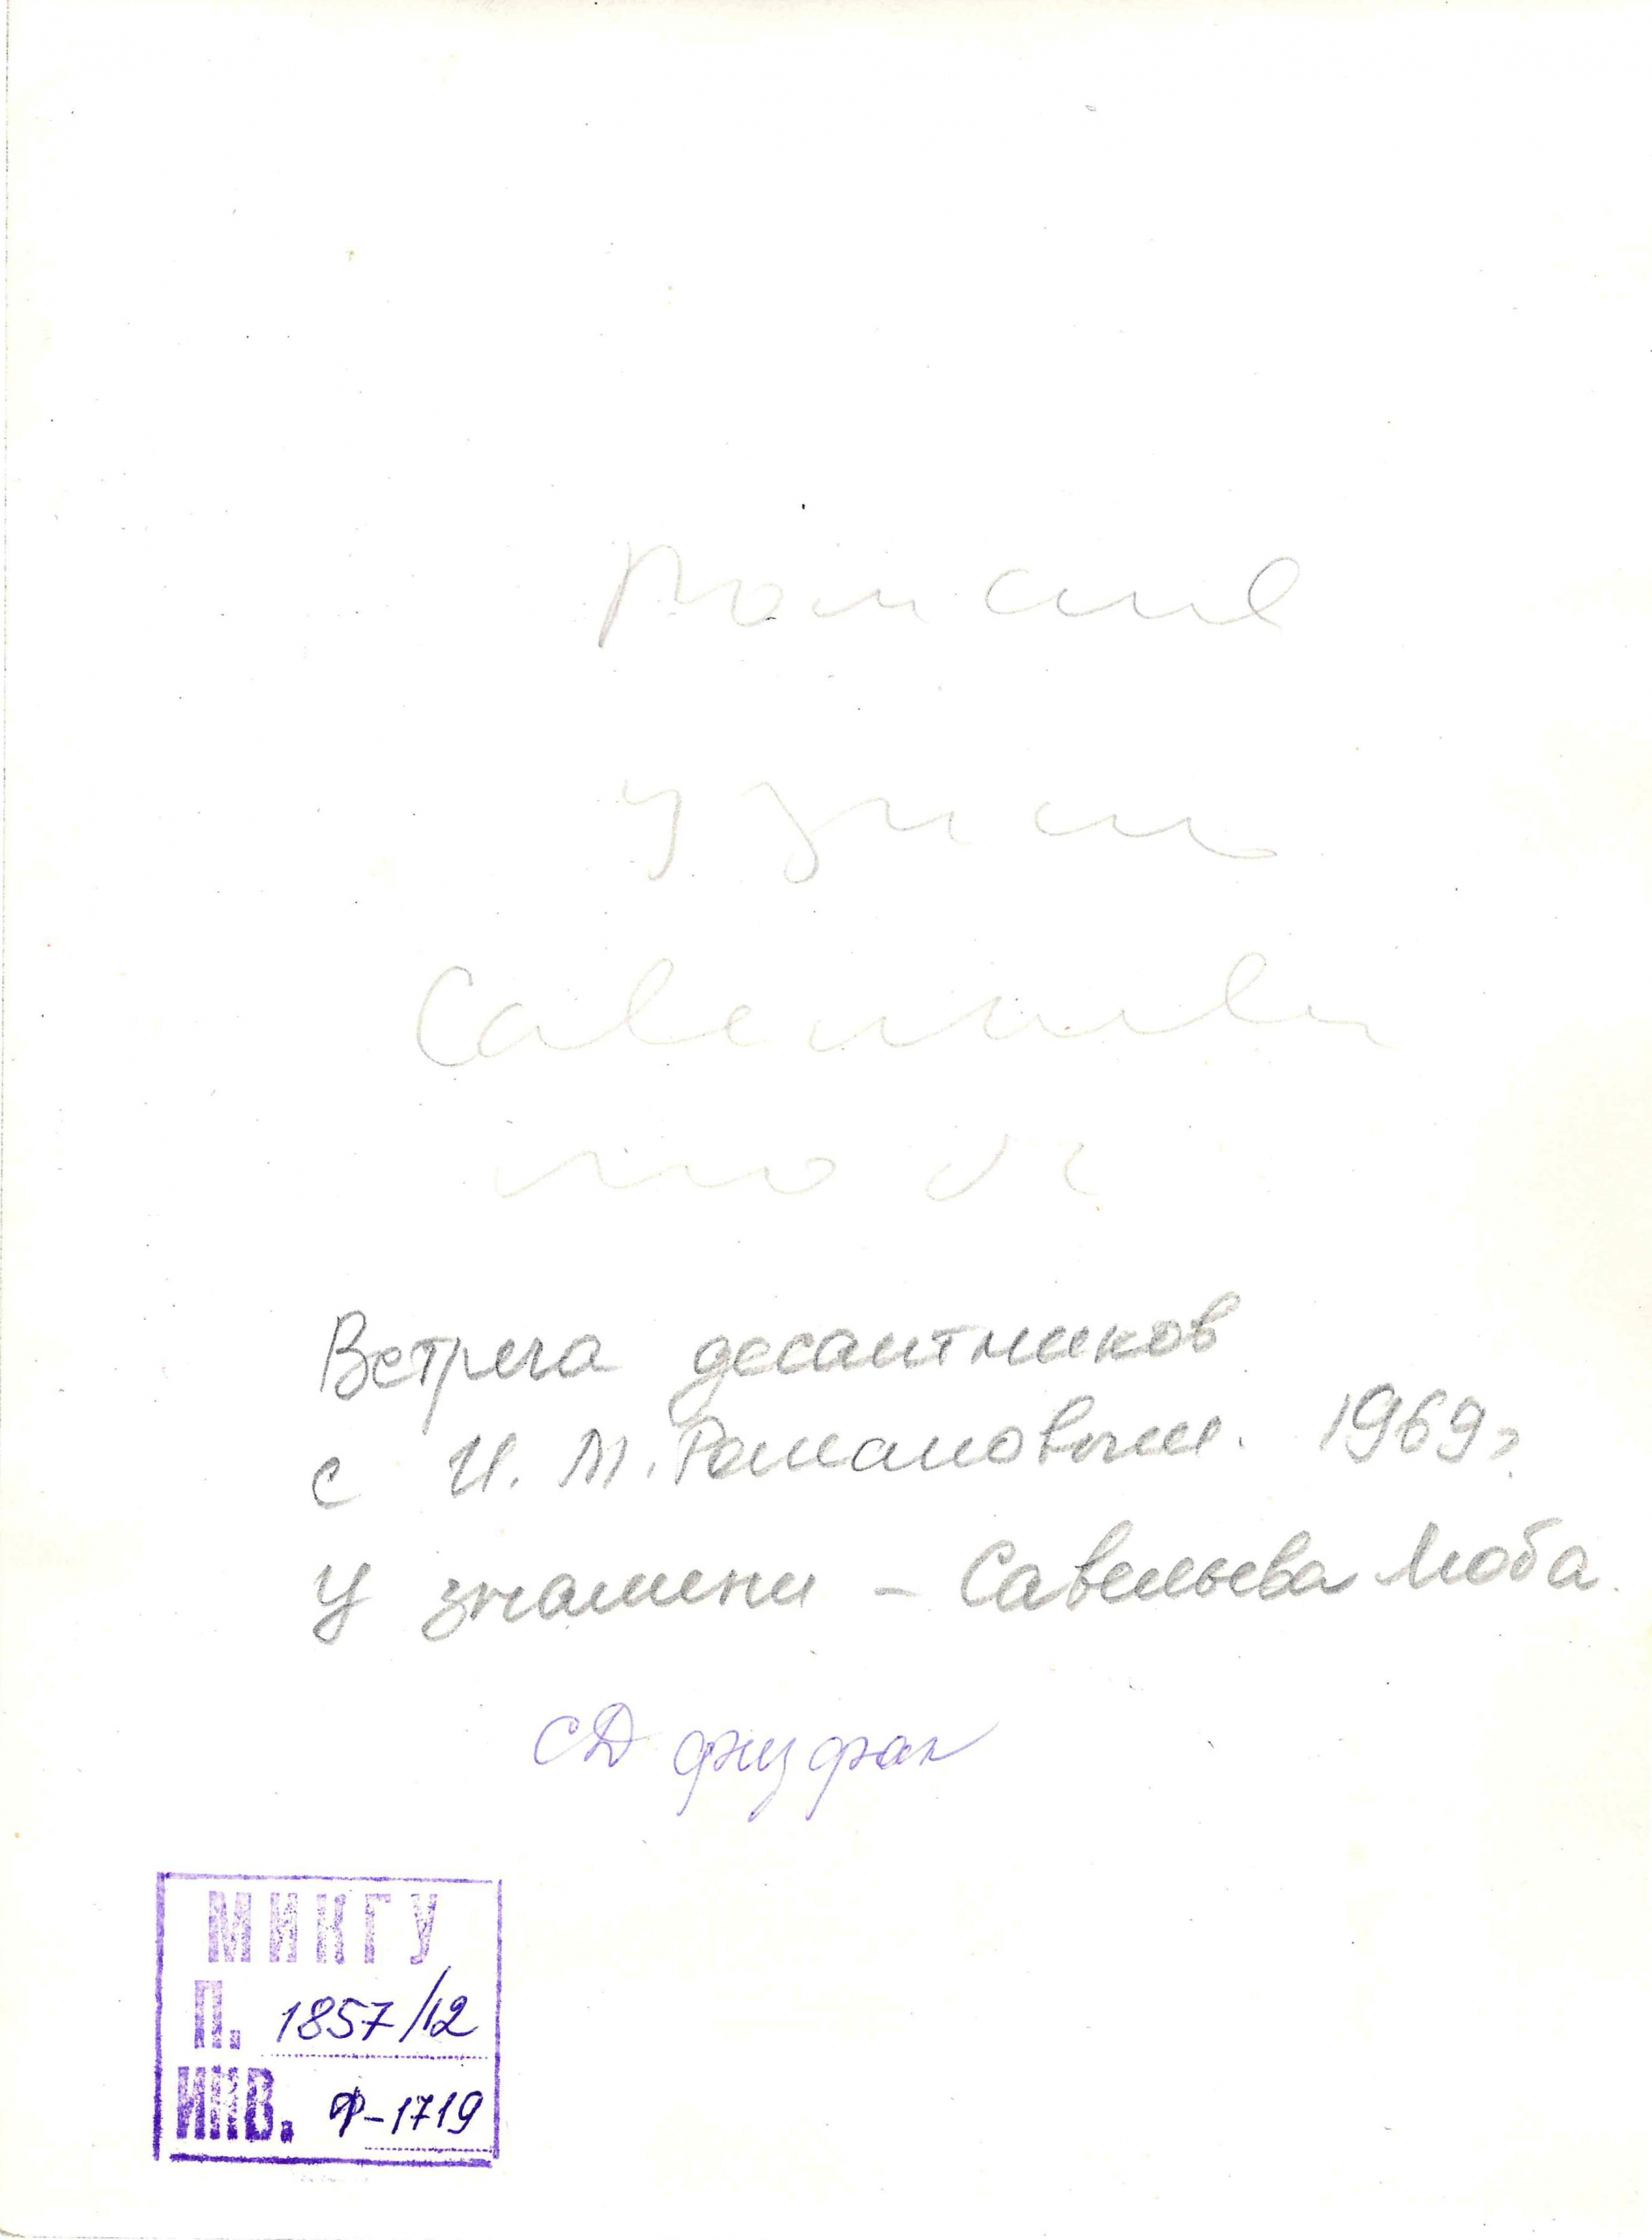 у знам
Савельева
Люба
Встреча десантников
с И. М. Романовым. 1969г.
У знамени – Савельева Люба.
СД физфак
МИКГУ
П. 1857/12
ИНВ. Ф-1719